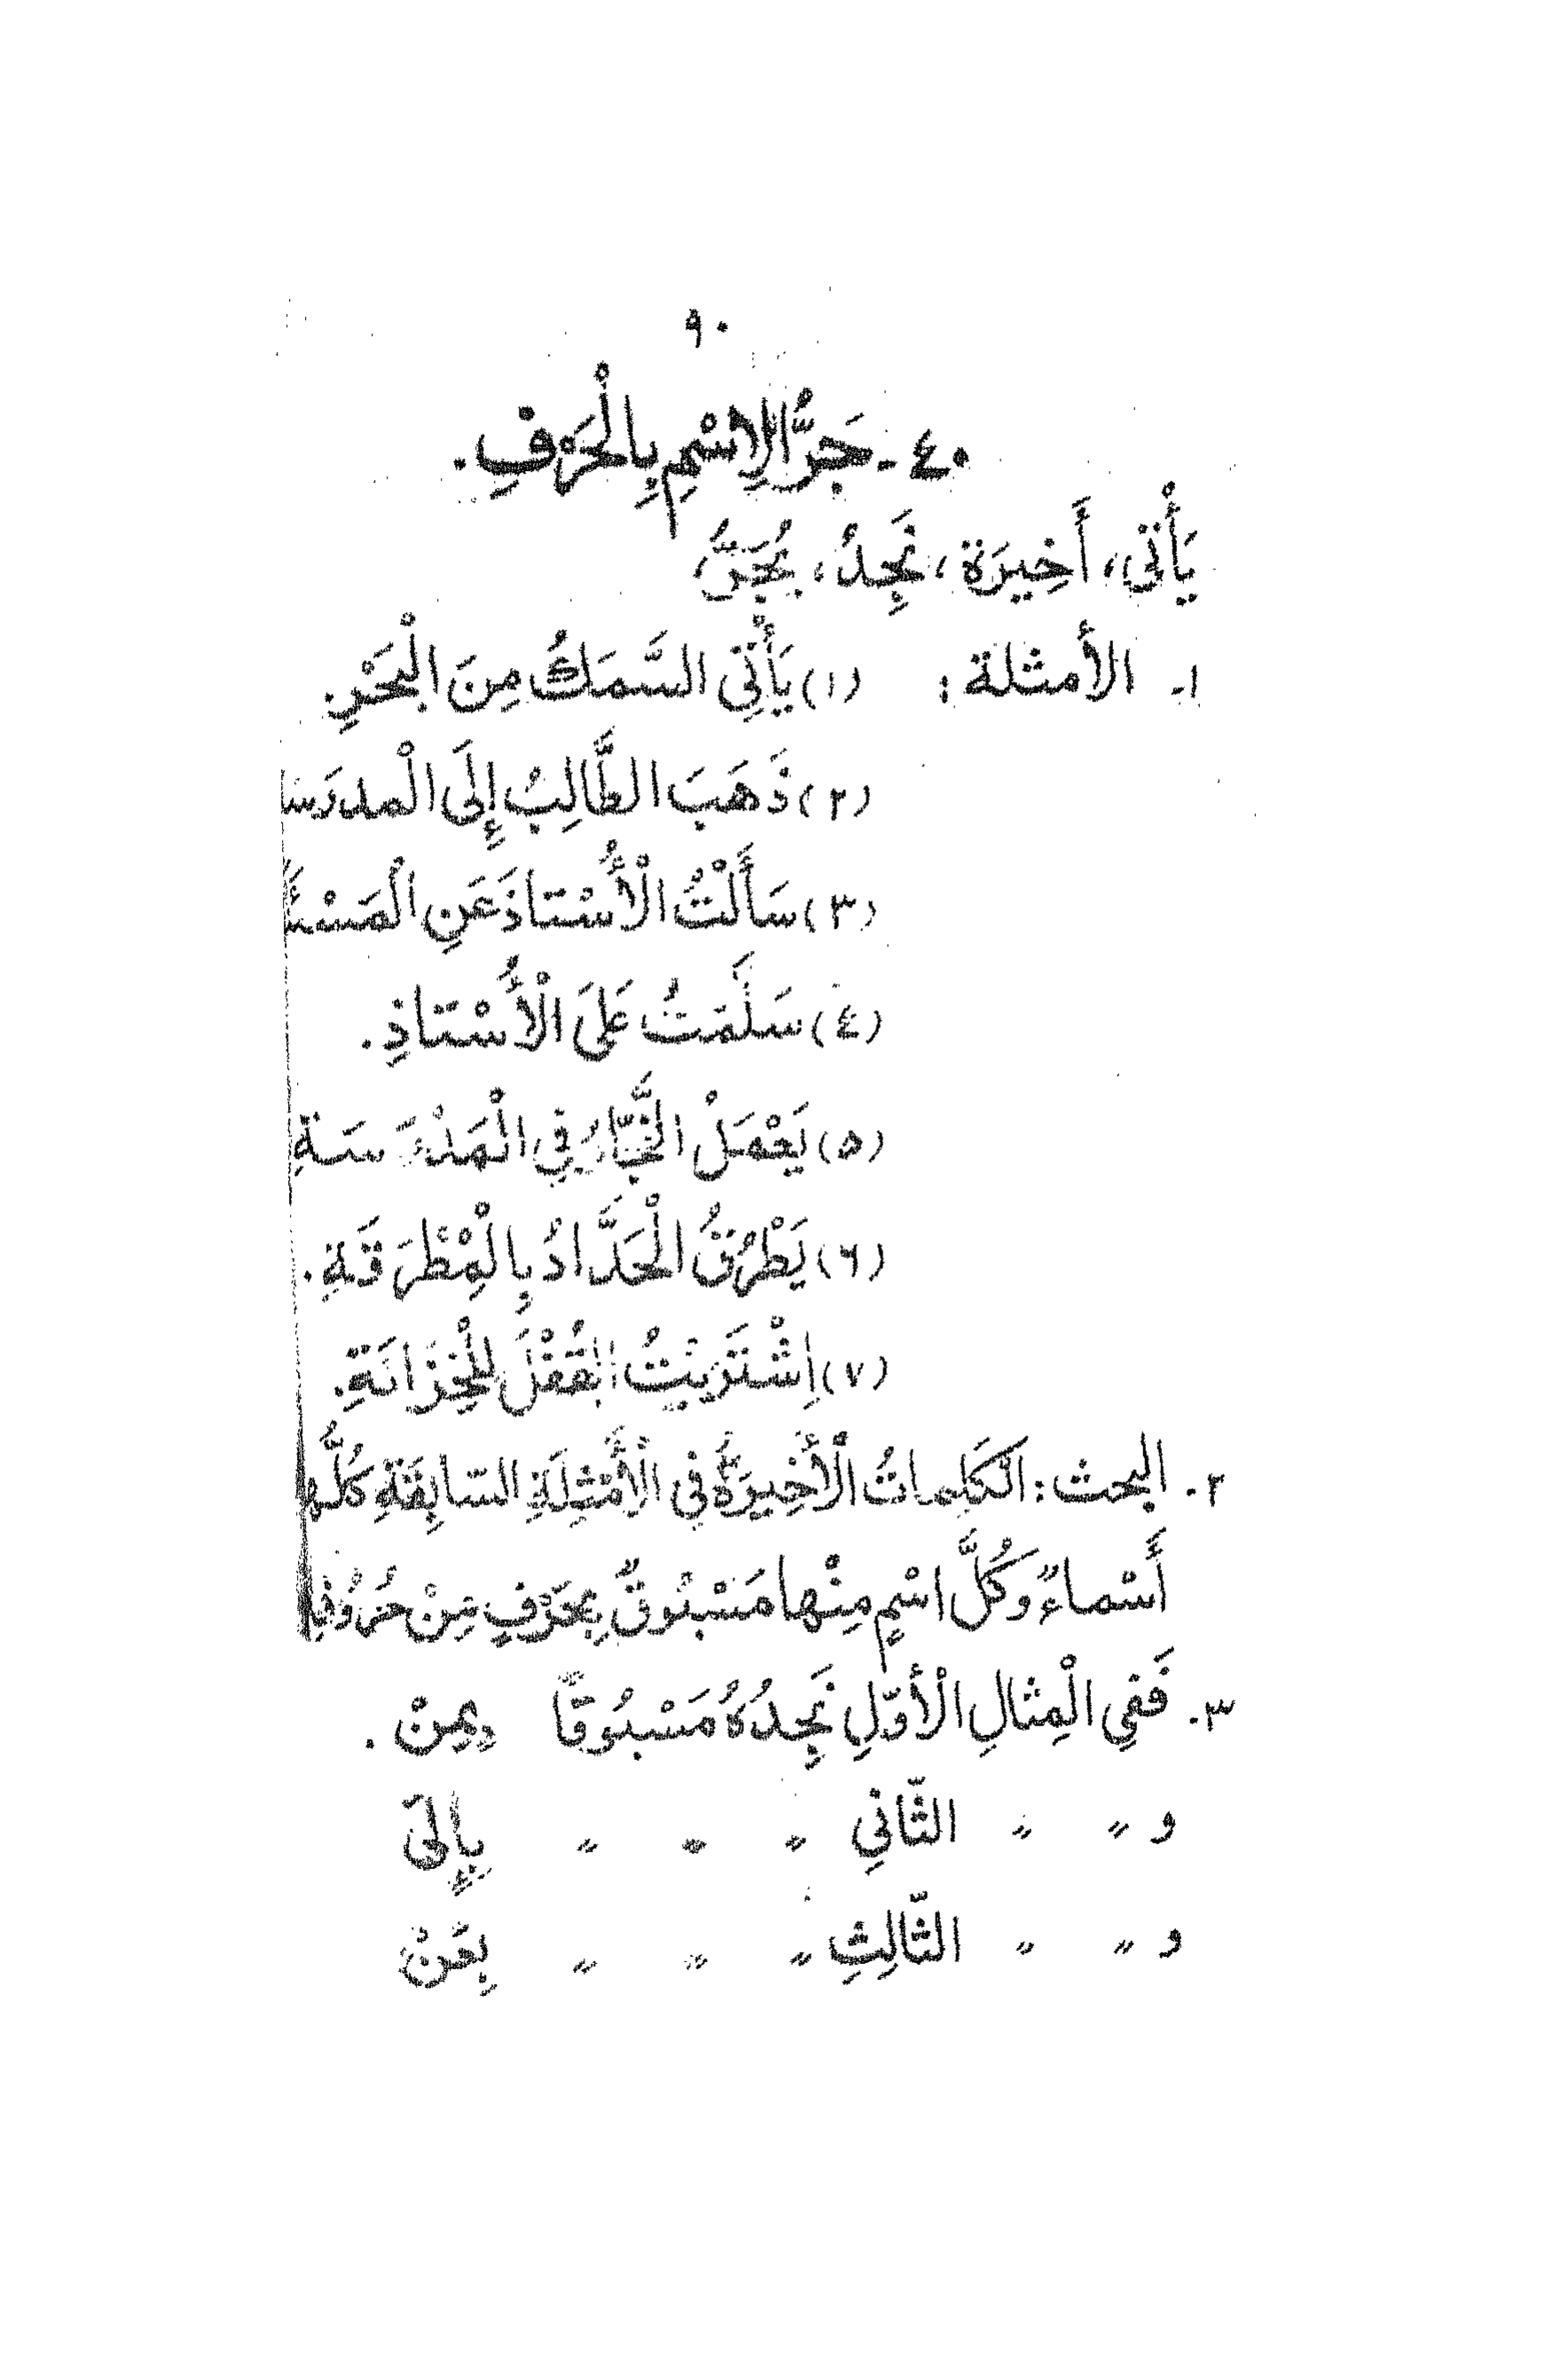 ٩٠
٤٠- جَرُّ الْاِسْمِ بِالْحَرْفِ.
يَأْتى، أَخِيرَة، نَجِدُ، يُجَرُّ،
١- الأمثلة: (١) يَأْتِي السَّمَكُ مِنَ الْبَحْرِ.
(٢) ذَهَبَ الطَّالِبُ إِلَى الْمدرَسَ
(٣) سَأَلْتُ الْأُسْتاذَ عَنِ الْمَسْئَ
(٤) سَلَّمَتُ عَلَى الْأُسْتَاذِ.
(٥) يَعْمَلُ النَّجَّارُ فِي الْمَدْرَسَةِ
(٦) يَطْرُقُ الْحَدَّادُ بِالْمِطْرَقَةِ.
(٧) اِشْتَرَيْتُ الْقُفْلَ لِلْخِزَانَةِ.
٢. البحث: الْكَلِماتُ الْأَخِيرَةُ فى الْأَمْثِلَةِ السّابِقَةِ كُلُّها
أَسْماءٌ وكُلُّ اسْمٍ مِنْها مَسْبُوقٌ بِحَرْفٍ مِنْ حُرُوْفِ
٣. فَفِي الْمِثالِ الْأوّلِ نَجِدُهُ مَسْبُوقًا بِمِنْ.
و " " الثّانِي " " " بِإِلَى
و " " الثّالِثِ " " " بِعَنْ